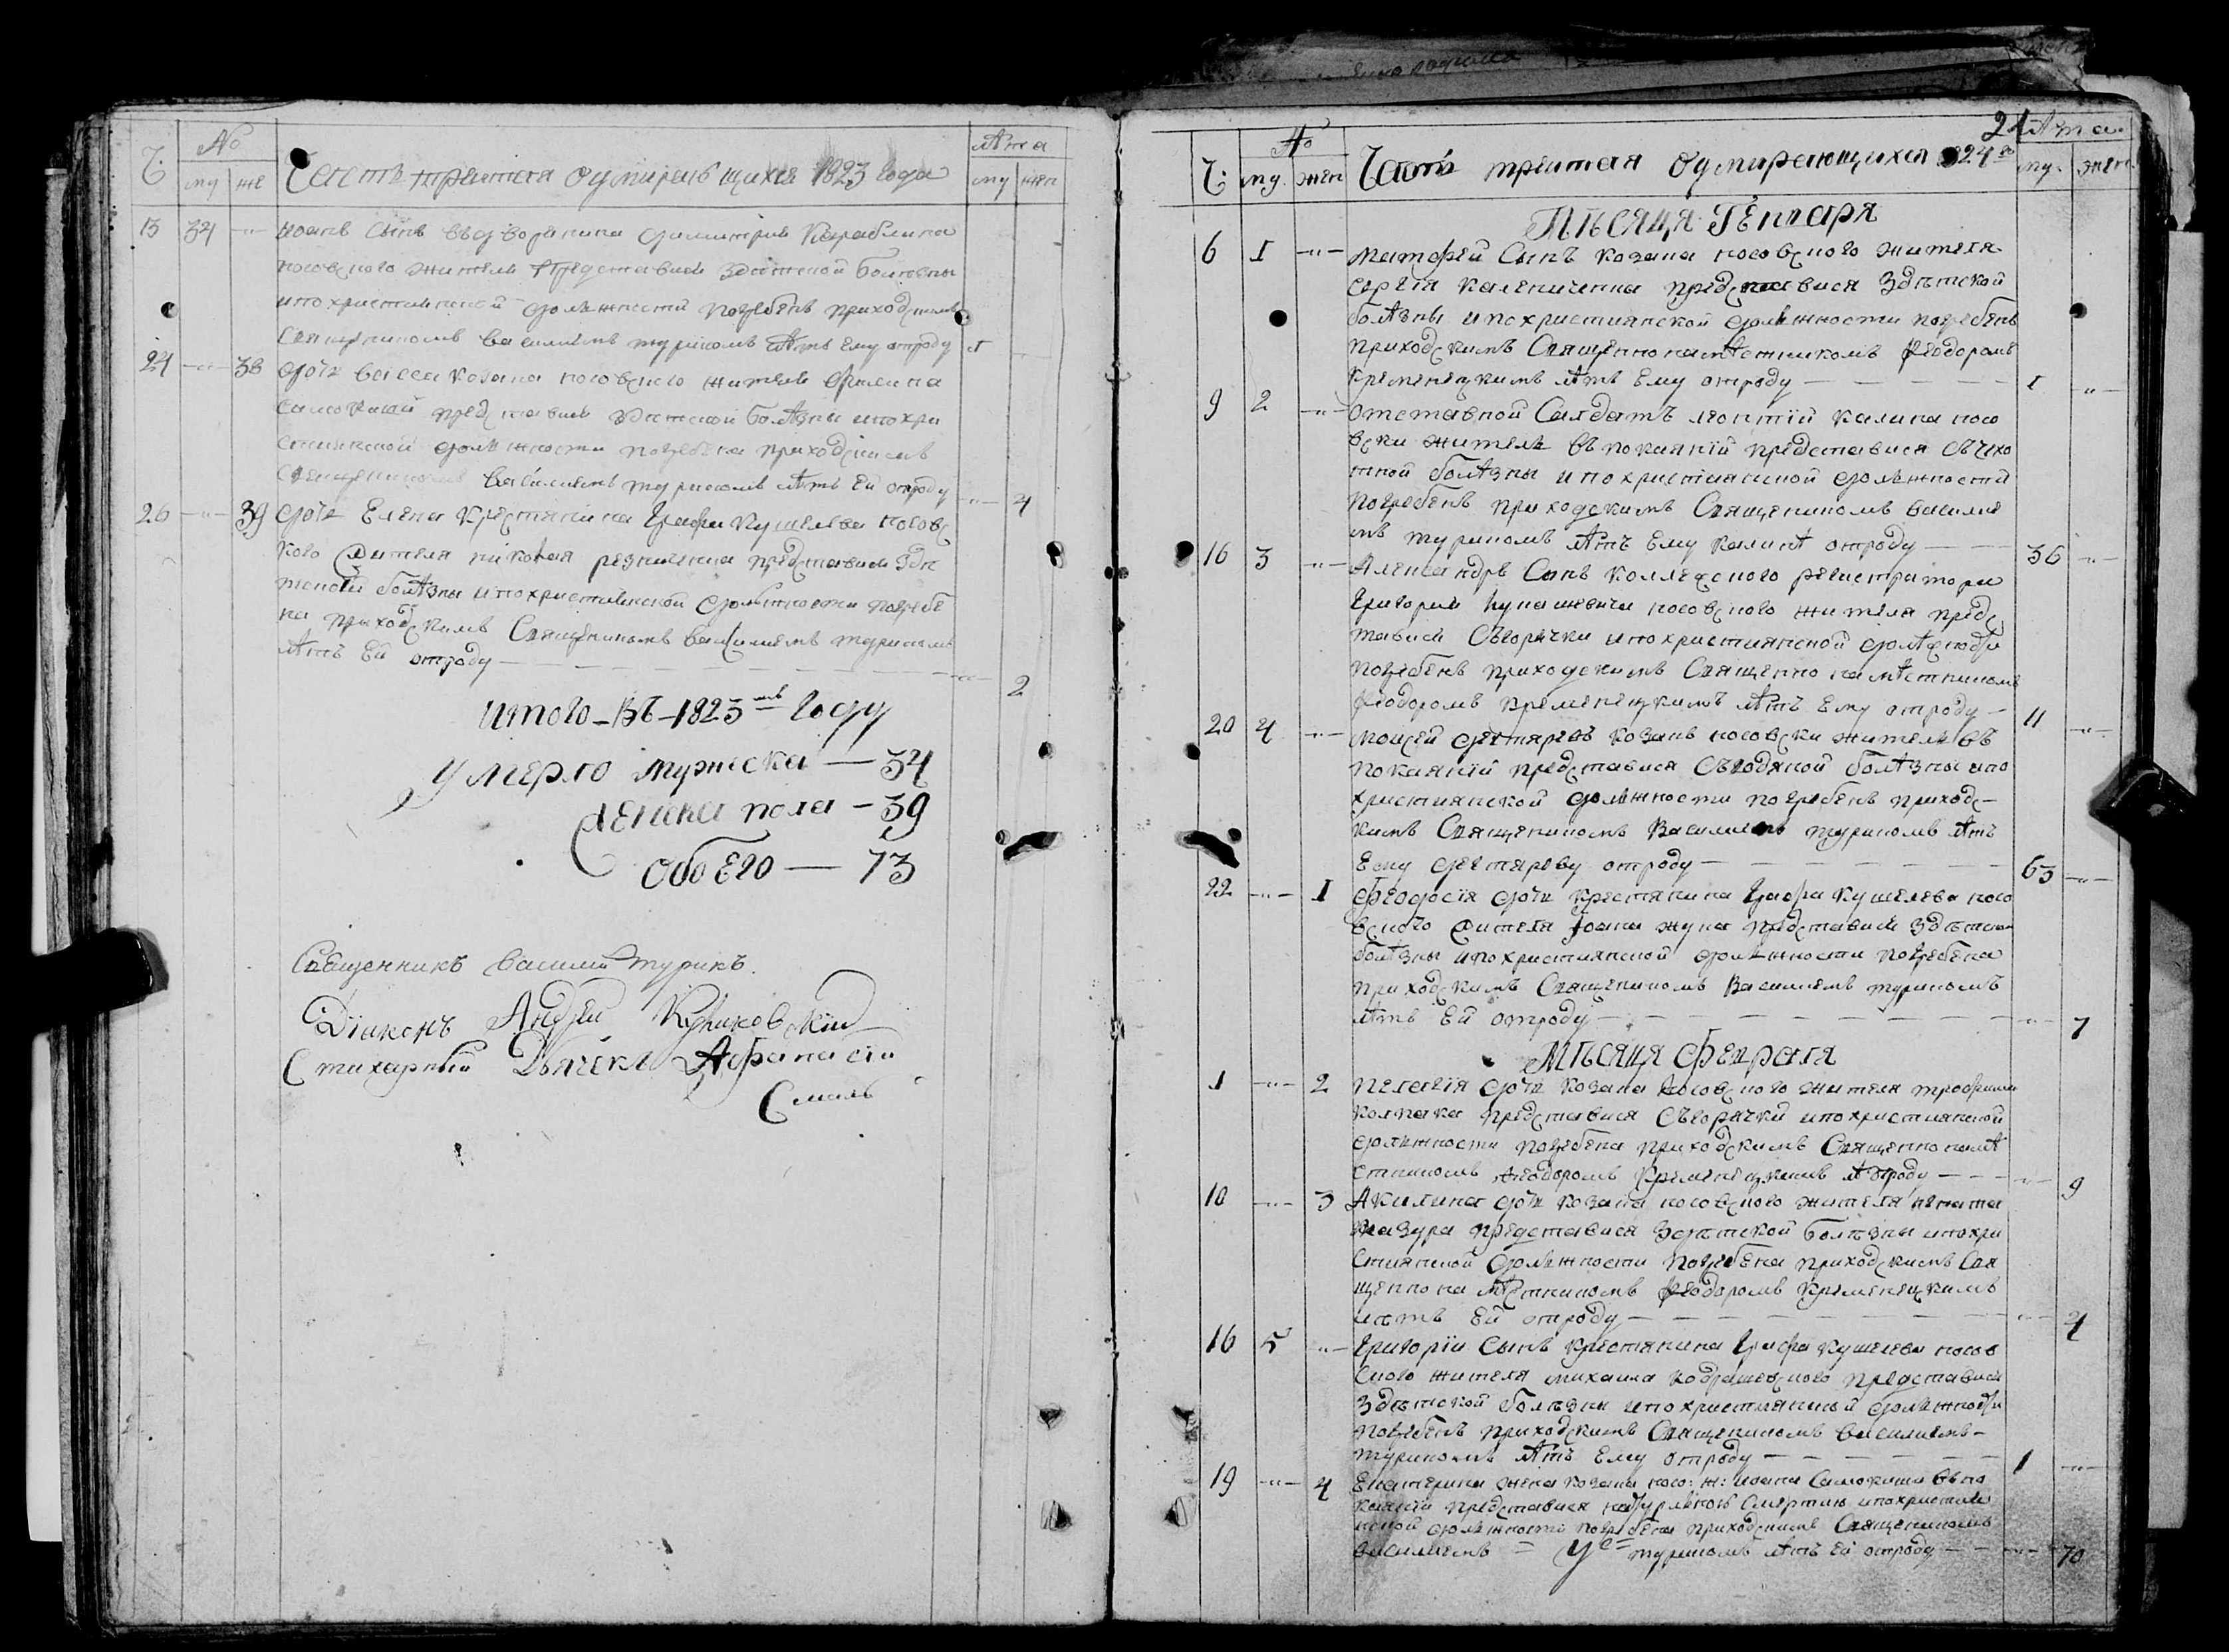 Ч. № Лѣта
му же Часть третая о умирающихся 1823 года му жен
13 34 -"- Иоанъ Сынъ Дворянина Димитрия Кораблина
носовского жителя Представися Здѣтской Болезны
ипохристиянской должности погребенъ приходскимъ
Священикомъ Василиемъ туриномъ Лѣтъ Ему отроду 1 -
24 -"- 38 дочь Васса козака носовского жителя
Самокиши представися Здѣтской Болѣзны ипохри
стиянской должности погребена приходскимъ
Священикомъ Василиемъ туриномъ лѣтъ Ей отроду -"- 4
26 -"- 39 дочь Елена Крестянина Графа Кушелева носовс
кого жителя николая резниченка представися Здѣ
тской болѣзны ипохристиянской должности погребе
на приходскимъ Священикомъ Василиемъ туриномъ
лѣтъ Ей отроду -"- 2
итого-въ-1823мъ году
умерло мужеска — 34
женска пола — 39
обоего — 73
Священникъ Василий Турикъ.
Діяконъ Андрей Куликовскій
Стихарный Дьячекъ Афанасій
Смаль
24
Ч. № Лѣта
му. жен Часть третая о умирающихся 1824го му. жен
Мѣсяця Генваря
6 1 -"- матфей Сынъ козака носовского жителя
Сергея Калениченка представися Здѣтской
болѣзны ипохристиянской должности погребенъ
приходскимъ Священнонамѣстникомъ Феодоромъ
Кременецкимъ лѣтъ Ему отроду — 1 -"-
9 2 -"- отставной Салдатъ леонтій Калина носо
вски житель въ покаяній представися Съчахо
тной болѣзны ипохристиянской должностй
погребенъ приходскимъ Священикомъ василие
мъ туриномъ лѣтъ Ему калинѣ отроду — 36 -"-
16 3 -"- Александръ Сынъ Коллежского регистратора
Григория носовского жителя предс
тавися Съгорячки ипохристиянской должности
погребенъ приходскимъ Священно намѣстникомъ
феодоромъ Кременецкимъ лѣтъ Ему отроду — 11 -"-
20 4 -"- моисей дехтяревъ козакъ носовски житель въ
покаяній представися Съводяной болѣзны ипо
християнской должности погребенъ приходс-
кимъ Священикомъ Василиемъ туриномъ лѣтъ
Ему дехтяреву отроду — 63 -"-
22 -"- 1 Феодосія дочь крестянина Графа Кушелева носо
вского жителя Іоана жука представися Здѣтской
болѣзны ипохристиянской должности погребена
приходскимъ Священикомъ Василиемъ туриномъ
лѣтъ Ей отроду — -"- 7
Мѣсяця Февраля
1 -"- 2 пелагія дочь козака носовского жителя трофима
колпака представися Съгорячки ипохристиянской
должности погребена приходскимъ Священнонамѣ
стникомъ Феодоромъ Кременецкимъ лѣ отроду — -"- 9
10 -"- 3 Акилина дочь козака носовского жителя игната
мазура представися Здѣтской болѣзны ипохри
стиянской должности погребена приходскимъ Свя
щеннонамѣстникомъ феодоромъ Кременецкимъ
лѣтъ Ей отроду — -"- 4
16 5 -"- Григорій Сынъ крестянина Графа Кушелева носов
ского жителя михаила представися
Здѣтской болѣзны ипохристиянской должности
погребенъ приходскимъ Священикомъ василиемъ-
туриномъ лѣтъ Ему отроду — 1 -"-
19 -"- 4 Екатерина жена козака носо: ж: иоана Самокиша въпо
каяній представися натуральною Смертию ипохристия
нской должности погребена приходскимъ Священикомъ
василиемъ = туриномъ лѣтъ Ей отроду — -"- 70